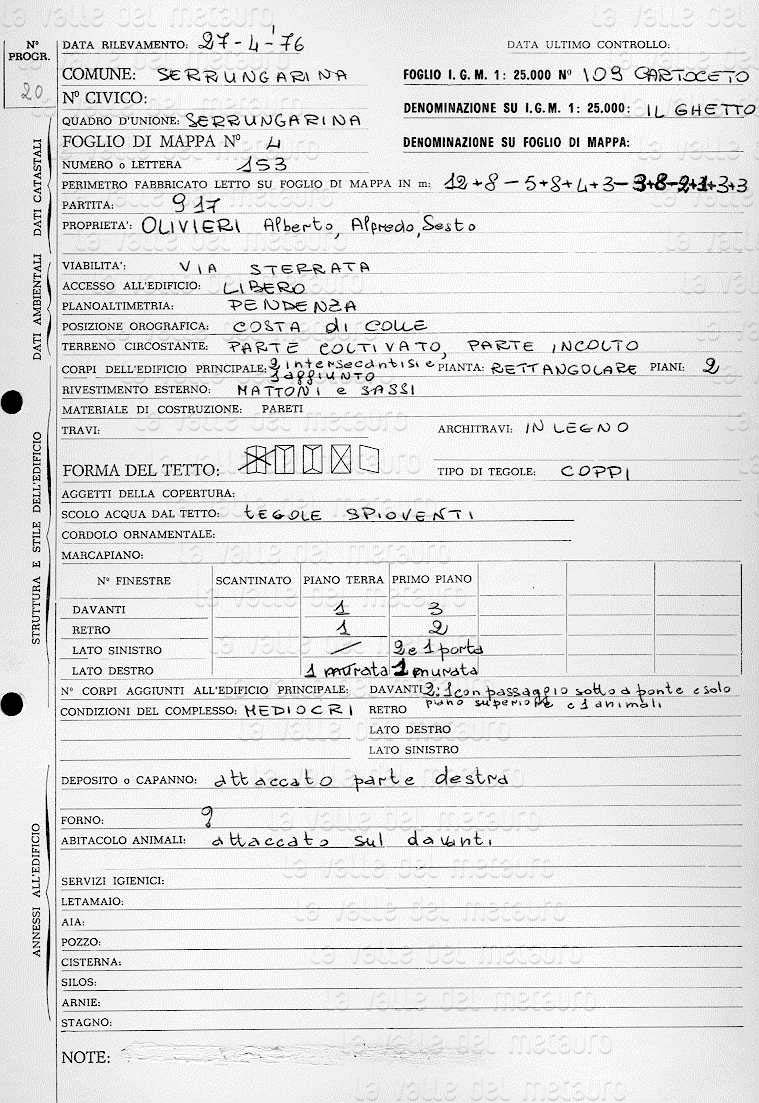 N° PROGR. 20
DATA RILEVAMENTO: 27-4-'76 DATA ULTIMO CONTROLLO:
COMUNE: SERRUNGARINA FOGLIO I.G.M. 1: 25.000 N° 109 CARTOCETO
N° CIVICO: DENOMINAZIONE SU I.G.M. 1: 25.000: IL GHETTO
QUADRO D'UNIONE: SERRUNGARINA
FOGLIO DI MAPPA N° 4 DENOMINAZIONE SU FOGLIO DI MAPPA:
NUMERO o LETTERA 153
PERIMETRO FABBRICATO LETTO SU FOGLIO DI MAPPA IN m: 12+8-5+8+4+3-3+8-2+1+3+3
PARTITA: 917
PROPRIETA': OLIVIERI Alberto, Alfredo, Sesto
DATI CATASTALI
VIABILITA': VIA STERRATA
ACCESSO ALL'EDIFICIO: LIBERO
PLANOALTIMETRIA: PENDENZA
POSIZIONE OROGRAFICA: COSTA di COLLE
TERRENO CIRCOSTANTE: PARTE COLTIVATO, PARTE INCOLTO
DATI AMBIENTALI
CORPI DELL'EDIFICIO PRINCIPALE: 2 intersecantisi e 1 aggiunto PIANTA: RETTANGOLARE PIANI: 2
RIVESTIMENTO ESTERNO: MATTONI e SASSI
MATERIALE DI COSTRUZIONE: PARETI
TRAVI: ARCHITRAVI: IN LEGNO
FORMA DEL TETTO: TIPO DI TEGOLE: COPPI
AGGETTI DELLA COPERTURA:
SCOLO ACQUA DAL TETTO: tEGOLE SPIOVENTI
CORDOLO ORNAMENTALE:
MARCAPIANO:
STRUTTURA E STILE DELL'EDIFICIO
N° FINESTRE SCANTINATO PIANO TERRA PRIMO PIANO
DAVANTI 1 3
RETRO 1 2
LATO SINISTRO / 2 e 1 porta
LATO DESTRO 1 murata 1 murata
N° CORPI AGGIUNTI ALL'EDIFICIO PRINCIPALE: DAVANTI 2: 1 con passaggio sotto a ponte e solo
piano superiore e 1 animali
CONDIZIONI DEL COMPLESSO: MEDIOCRI RETRO
LATO DESTRO
LATO SINISTRO
DEPOSITO o CAPANNO: attaccato parte destra
FORNO: ?
ABITACOLO ANIMALI: attaccato sul davanti
SERVIZI IGIENICI:
LETAMAIO:
AIA:
POZZO:
CISTERNA:
SILOS:
ARNIE:
STAGNO:
ANNESSI ALL'EDIFICIO
NOTE:
la valle del metauro